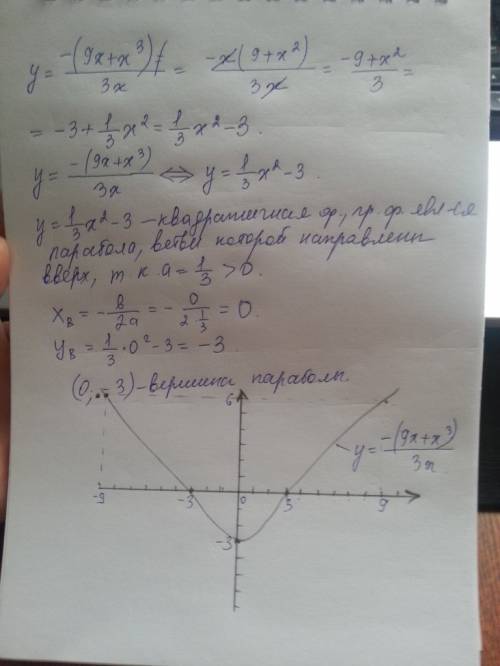 y = -(9x+x³)/3x = -x(9+x²)/3x = -9+x²/3 =
= -3+1/3x² = 1/3x²-3.
y = -(9x+x³)/3x ⇔ y = 1/3x²-3.
y = 1/3x²-3 – квадратичная ф., гр. ф. явл-ся
парабола, ветви которой направлены
вверх, т к a = 1/3 > 0.
x_в = -в/2a = -0/2 1/3 = 0.
y_в = 1/3·0²-3 = -3
(0; -3) - вершина параболы.
6
y = -(9x+x³)/3x
-9 -3 0 3 9
-3